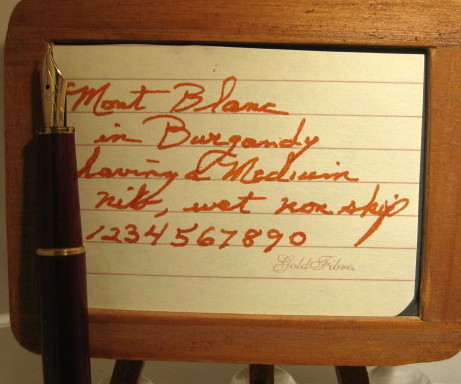 Mont Blanc
in Burgandy
having a Medium
nib, wet non skip
1234567890
Gold Fibre